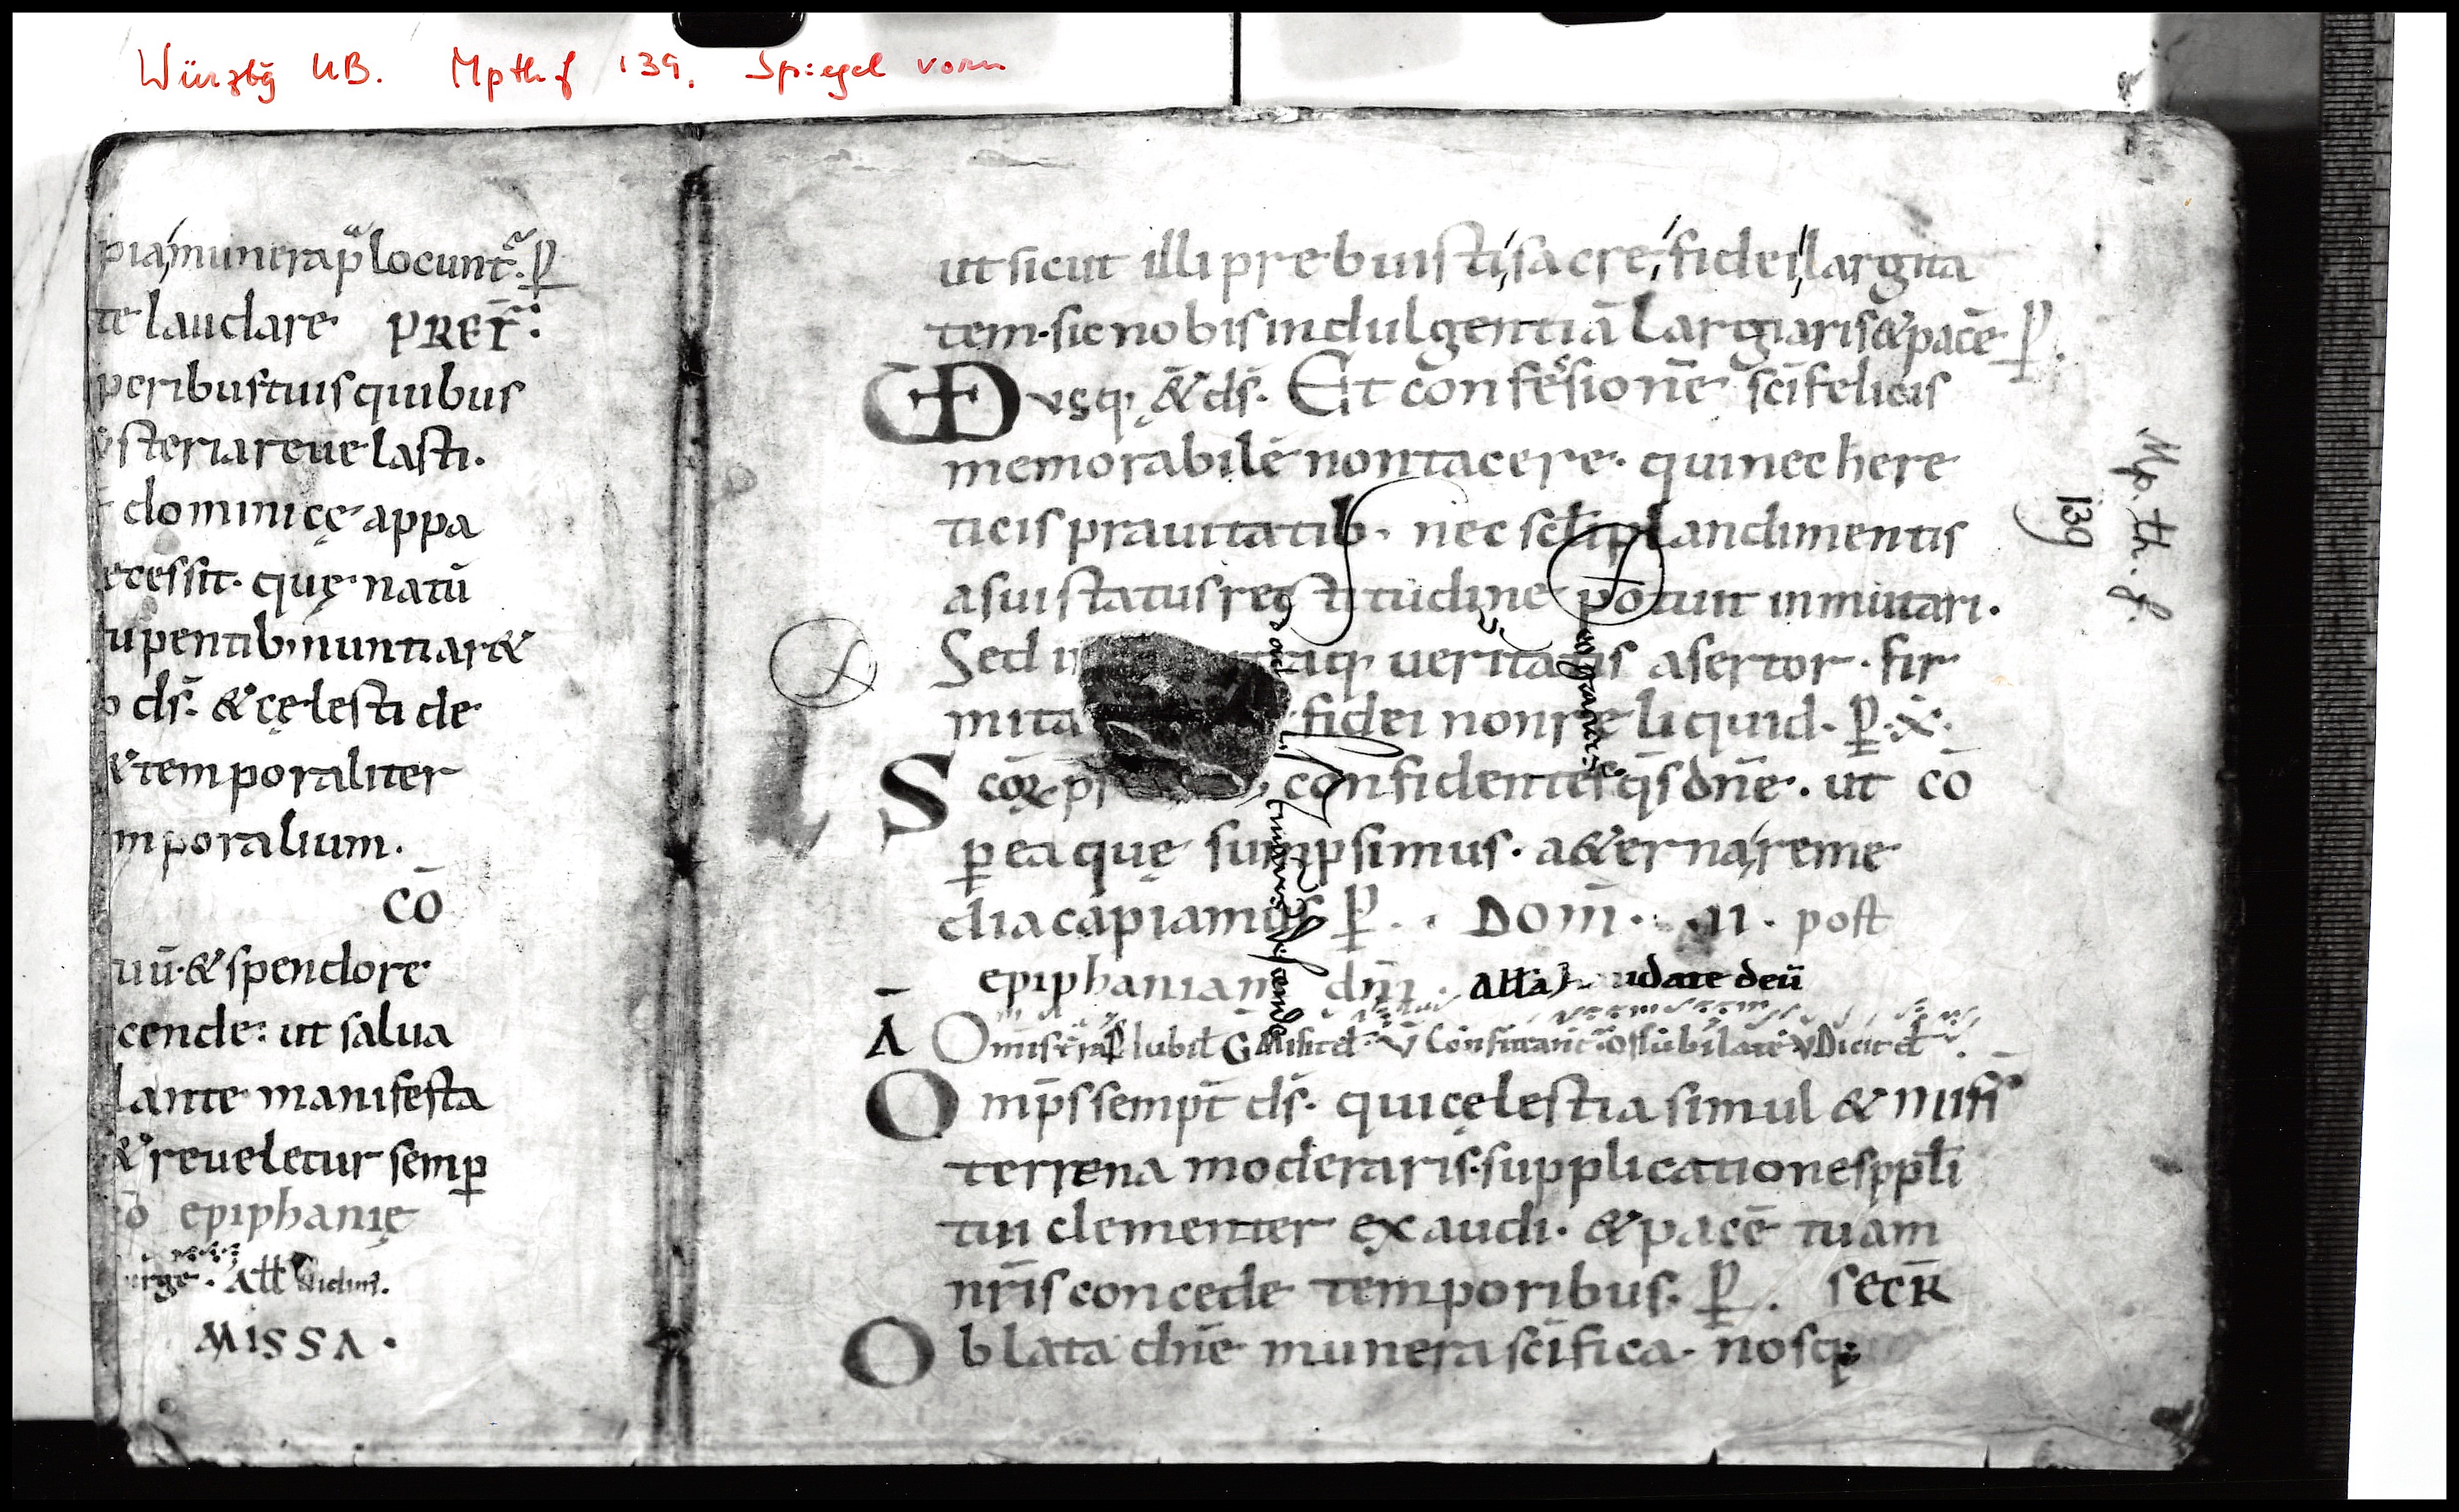 Würzbg UB. Mpthf 139. Spiegel vorn
pia munera p̄locunt᷑. ꝑ
te laudare PREF̄:
peribus tuis quibus
ysteria reuelasti.
dominicę appa
cessit. quę natū
upentib; nuntiar&
ds̄. & cęlesti de
& temporaliter
mporalium.
cō
uū. & splendore
cende: ut salua
lante manifesta
& reueletur semꝑ
epiphanię
urge. Aℓℓ
MISSA.
ut sicut illi prebuisti, sacre, fidei, largita
tem. sic nobis indulgentiā largiaris & pacē. ꝑ.
VDusq; &ds̄. Et confes̄ionē sc̄i felicis
memorabilē non tacere. qui nec here
ticis prauitatib; nec scl̄i plandimentis
a sui status rectitudine potuit inmutari.
Sed i ueritatis asertor. fir
mita fidei non reliquid. ꝑ. x̄.
Scōꝝ p confidentes q̄s dn̄e. ut cō
ꝑ ea quę sumpsimus. a&erna, reme
dia capiamus ꝑ. Dom̄. II. post
epiphaniam dn̄i. alla udate deū
A Omnis terra
Omp̄s sempt̄ ds̄. qui cęlestia simul &
terrena moderaris. supplicationes ppl̄i
tui clementer exaudi. & pacē tuam
nr̄is concede temporibus. ꝑ. SECR̄
Oblata dn̄e munera sc̄ifica. nosq;
Mp. th. f.
139